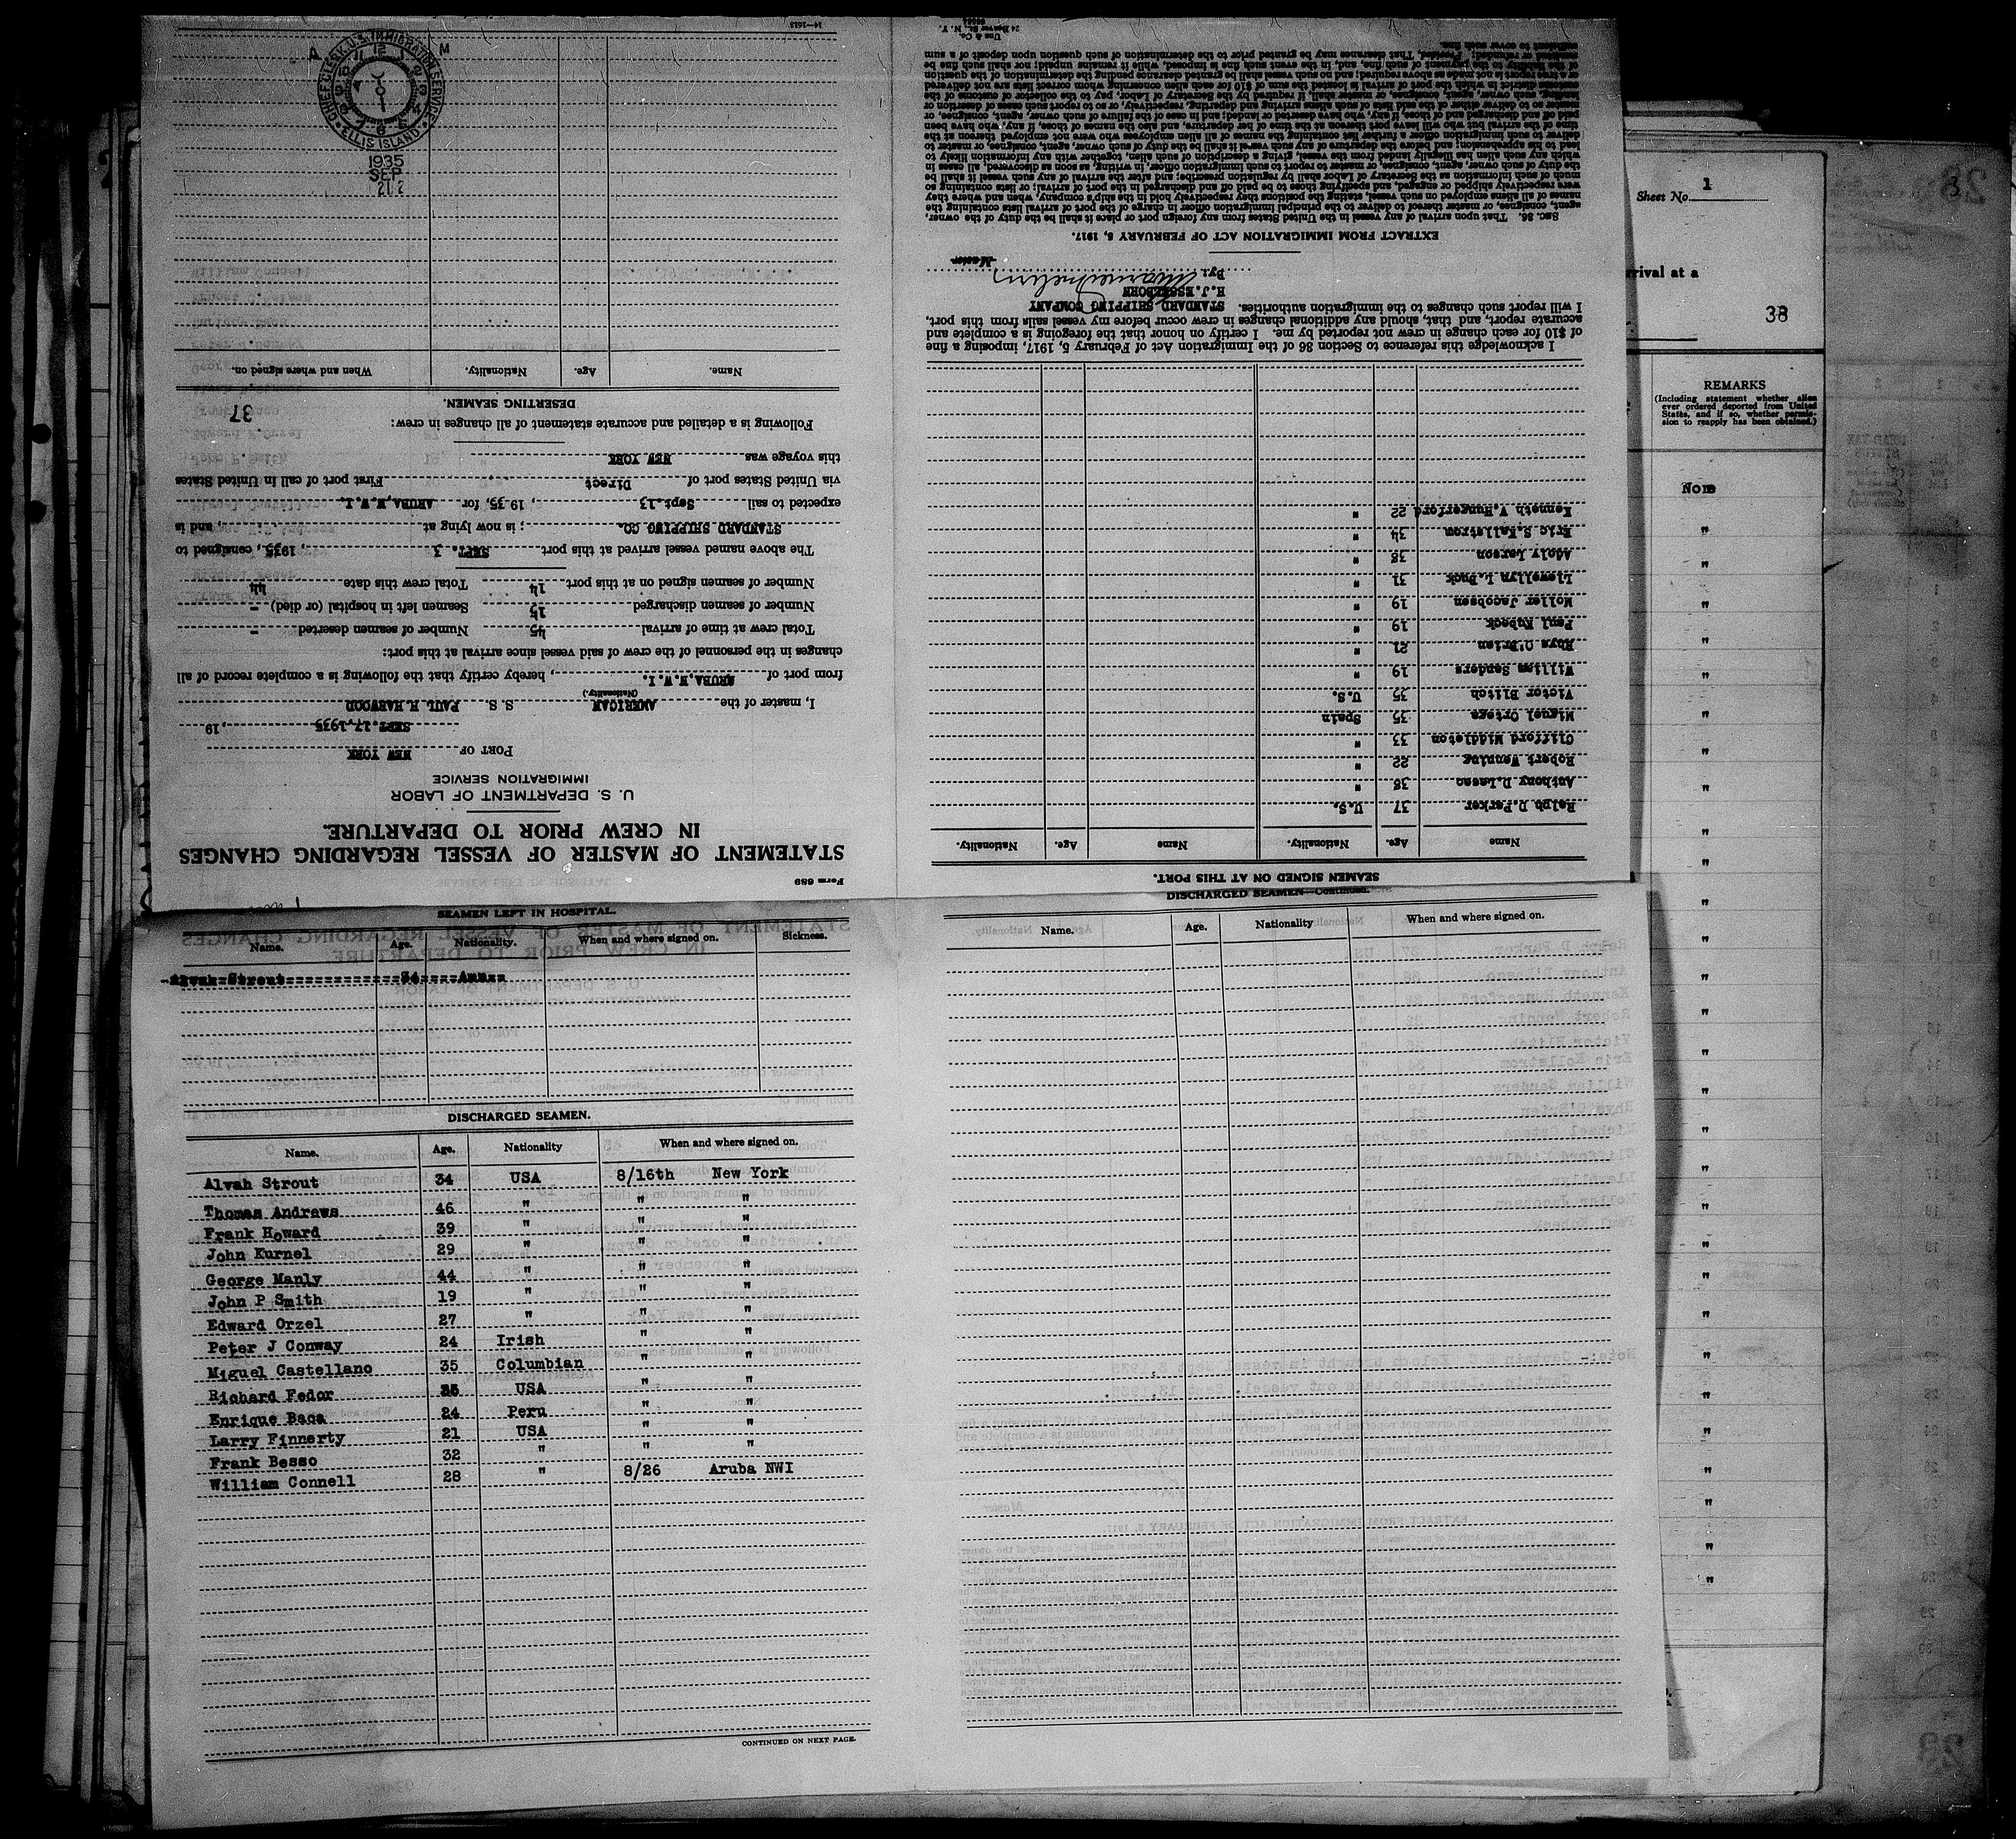 Form 689
STATEMENT OF MASTER OF VESSEL REGARDING CHANGES
IN CREW PRIOR TO DEPARTURE.
U. S. DEPARTMENT OF LABOR
IMMIGRATION SERVICE
PORT OF NEW YORK
SEPT.17.1935, 19
I, master of the AMERICAN S. S. PAUL H.HARWOOD
(Nationality.)
from port of ARUBA,N.W.I., hereby certify that the following is a complete record of all
changes in the personnel of the crew of said vessel since arrival at this port:
Total crew at time of arrival 45 Number of seamen deserted -
Number of seamen discharged 15 Seamen left in hospital (or died) -
Number of seamen signed on at this port 14 Total crew this date 44
The above named vessel arrived at this port SEPT. 3, 1935, consigned to
STANDARD SHIPPING CO. ; is now lying at , and is
expected to sail Sept.13, 1935, for ARUBA,N.W.I.
via United States port of Direct First port of call in United States
this voyage was NEW YORK
Following is a detailed and accurate statement of all changes in crew:
37
DESERTING SEAMEN.
Name. Age. Nationality. When and where signed on.
CHIEF CLERK U.S. IMMIGRATION SERVICE
ELLIS ISLAND
A M
1935
SEP
14—1613
SEAMEN SIGNED ON AT THIS PORT.
Name Age. Nationality. Name Age. Nationality.
Ralph D.Parker 37 U.S.
Anthony D.Lasao 38 "
Robert Wenning 22 "
Clifford Middleton 33 "
Miguel Ortega 35 Spain
Victor Blitch 35 U.S.
William Sanders 19 "
Rhys O.Brien 21 "
Paul Kubeck 19 "
Moller Jacobsen 19 "
Llewellyn L.Puck 31 "
Adolv Larson 38 "
Eric S.Kallstrom 34 "
Kenneth V.Hungerford 22 "
I acknowledge this reference to Section 36 of the Immigration Act of February 5, 1917, imposing a fine
of $10 for each change in crew not reported by me. I certify on honor that the foregoing is a complete and
accurate report, and that, should any additional changes in crew occur before my vessel sails from this port,
I will report such changes to the immigration authorities. STANDARD SHIPPING COMPANY
H.J.ESSELBORN
By:
Master
EXTRACT FROM IMMIGRATION ACT OF FEBRUARY 5, 1917.
SEC. 36. That upon arrival of any vessel in the United States from any foreign port or place it shall be the duty of the owner,
agent, consignee, or master thereof to deliver to the principal immigration officer in charge of the port of arrival lists containing the
names of all aliens employed on such vessel, stating the positions they respectively hold in the ship's company, when and where they
were respectively shipped or engaged, and specifying those to be paid off and discharged in the port of arrival; or lists containing so
much of such information as the Secretary of Labor shall by regulation prescribe; and after the arrival of any such vessel it shall be
the duty of such owner, agent, consignee, or master to report to such immigration officer, in writing, as soon as discovered, all cases in
which any such alien has illegally landed from the vessel, giving a description of such alien, together with any information likely to
lead to his apprehension; and before the departure of any such vessel it shall be the duty of such owner, agent, consignee, or master to
deliver to such immigration officer a further list containing the names of all alien employees who were not employed thereon at the
time of the arrival but who will leave port thereon at the time of her departure, and also the names of those, if any, who have been
paid off and discharged and of those, if any, who have deserted or landed; and in case of the failure of such owner, agent, consignee, or
master so to deliver either of the said lists of such aliens arriving and departing, respectively, or so to report such cases of desertion or
landing, such owner, agent, consignee, or master shall, if required by the Secretary of Labor, pay to the collector of customs of the
customs district in which the port of arrival is located the sum of $10 for each alien concerning whom correct lists are not delivered
or a true report is not made as above required; and no such vessel shall be granted clearance pending the determination of the question
of the liability to the payment of such fine, and, in the event such fine is imposed, while it remains unpaid; nor shall such fine be
remitted or refunded: Provided, That clearance may be granted prior to the determination of such question upon deposit of a sum
sufficient to cover such fine.
Sheet No. 1
rrival at a
38
REMARKS
(Including statement whether alien
ever ordered deported from United
States, and if so, whether permis-
sion to reapply has been obtained.)
None
"
SEAMEN LEFT IN HOSPITAL.
Name. Age. Nationality. When and where signed on. Sickness.
Alvah Strout 34
DISCHARGED SEAMEN.
Name. Age. Nationality When and where signed on.
Alvah Strout 34 USA 8/16th New York
Thomas Andrews 46 " " "
Frank Howard 39 " " "
John Kurnel 29 " " "
George Manly 44 " " "
John P Smith 19 " " "
Edward Orzel 27 " " "
Peter J Conway 24 Irish " "
Miguel Castellano 35 Columbian " "
Richard Fedor USA " "
Enrique Baca 24 Peru " "
Larry Finnerty 21 USA " "
Frank Besso 32 " " "
William Connell 28 " 8/26 Aruba NWI
CONTINUED ON NEXT PAGE.
DISCHARGED SEAMEN—Continued.
Name. Age. Nationality When and where signed on.